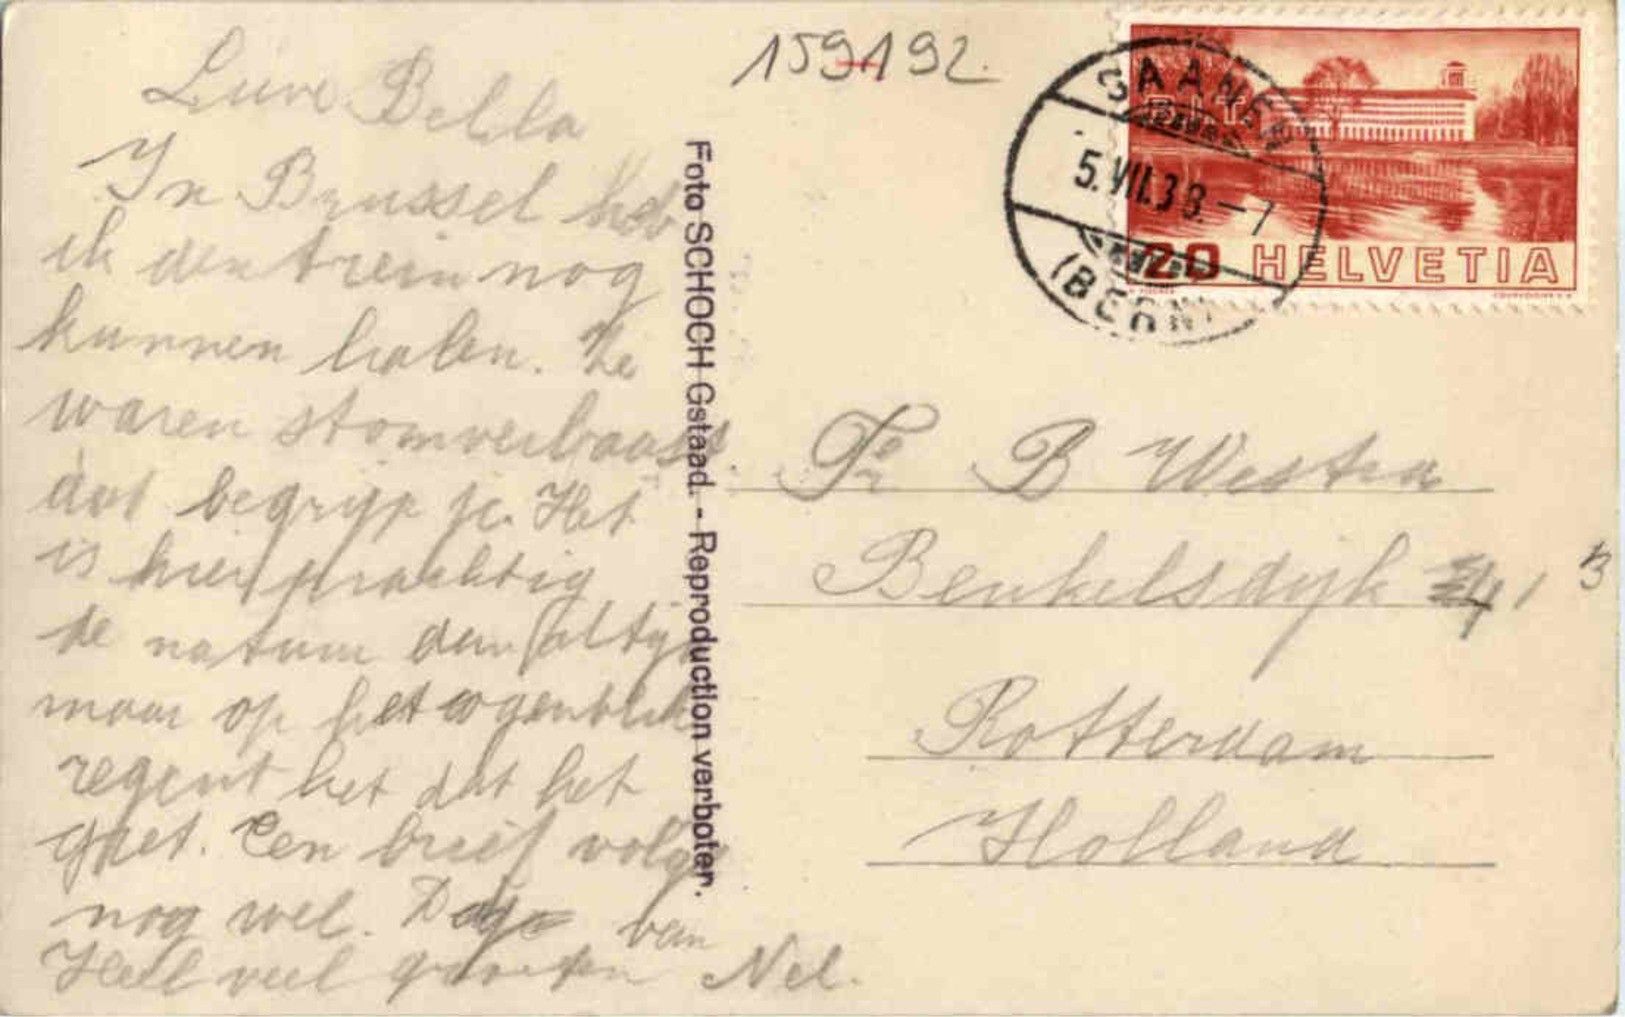 159192.
Lieve Bella
In Brussel heb
ik den trein nog
kunnen halen. Ze
waren stomverbaasd
dat begrijp je. Het
is hier prachtig
de natuur dan altijd
maar op het oogenblik
regent het dat het
giet. Een brief volgt
nog wel. Dag van
Heel veel groeten Nel.
Foto SCHOCH Gstaad. - Reproduction verboten.
SAANEN
5.VII.38.-7
(BERN)
20 HELVETIA
Fr B Westra
Beukelsdijk
Rotterdam
Holland